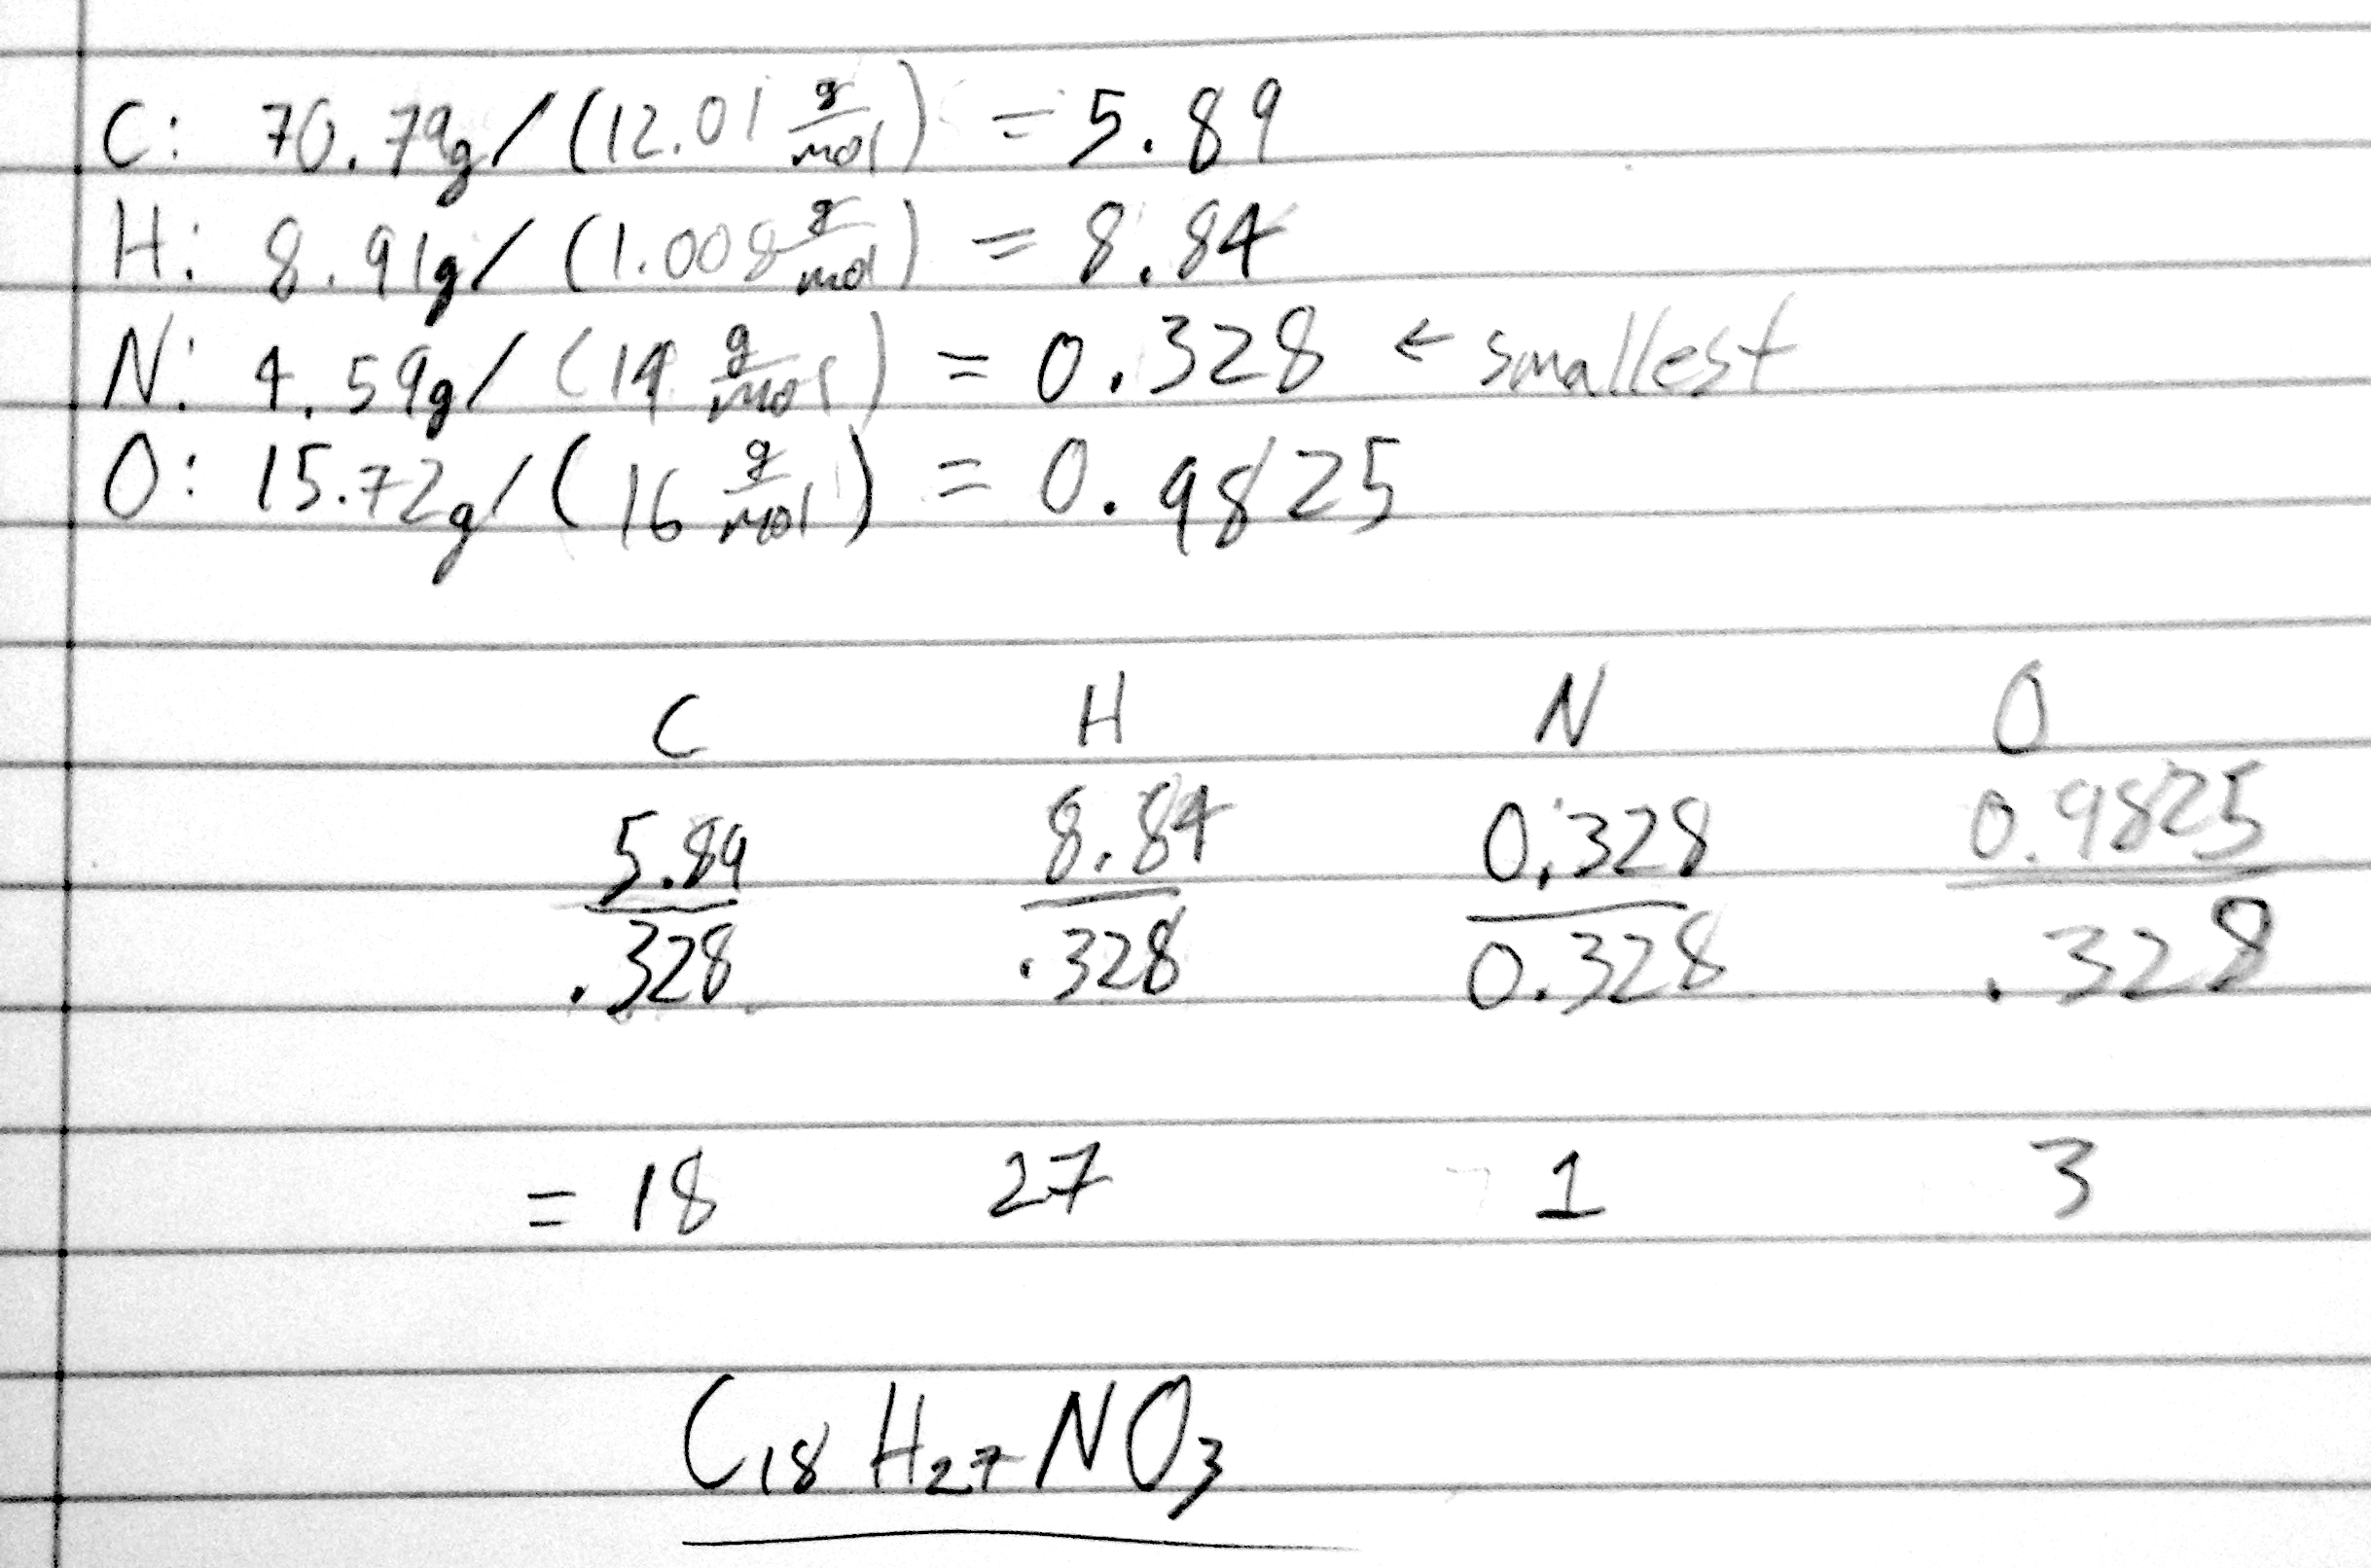 C: 70.79g/(12.01 g/mol) = 5.89
H: 8.91g/(1.008 g/mol) = 8.84
N: 4.59g/(14 g/mol) = 0.328 ← smallest
O: 15.72g/(16 g/mol) = 0.9825
C H N O
5.89 8.84 0.328 0.9825
.328 .328 0.328 .328
= 18 27 1 3
C18 H27 NO3